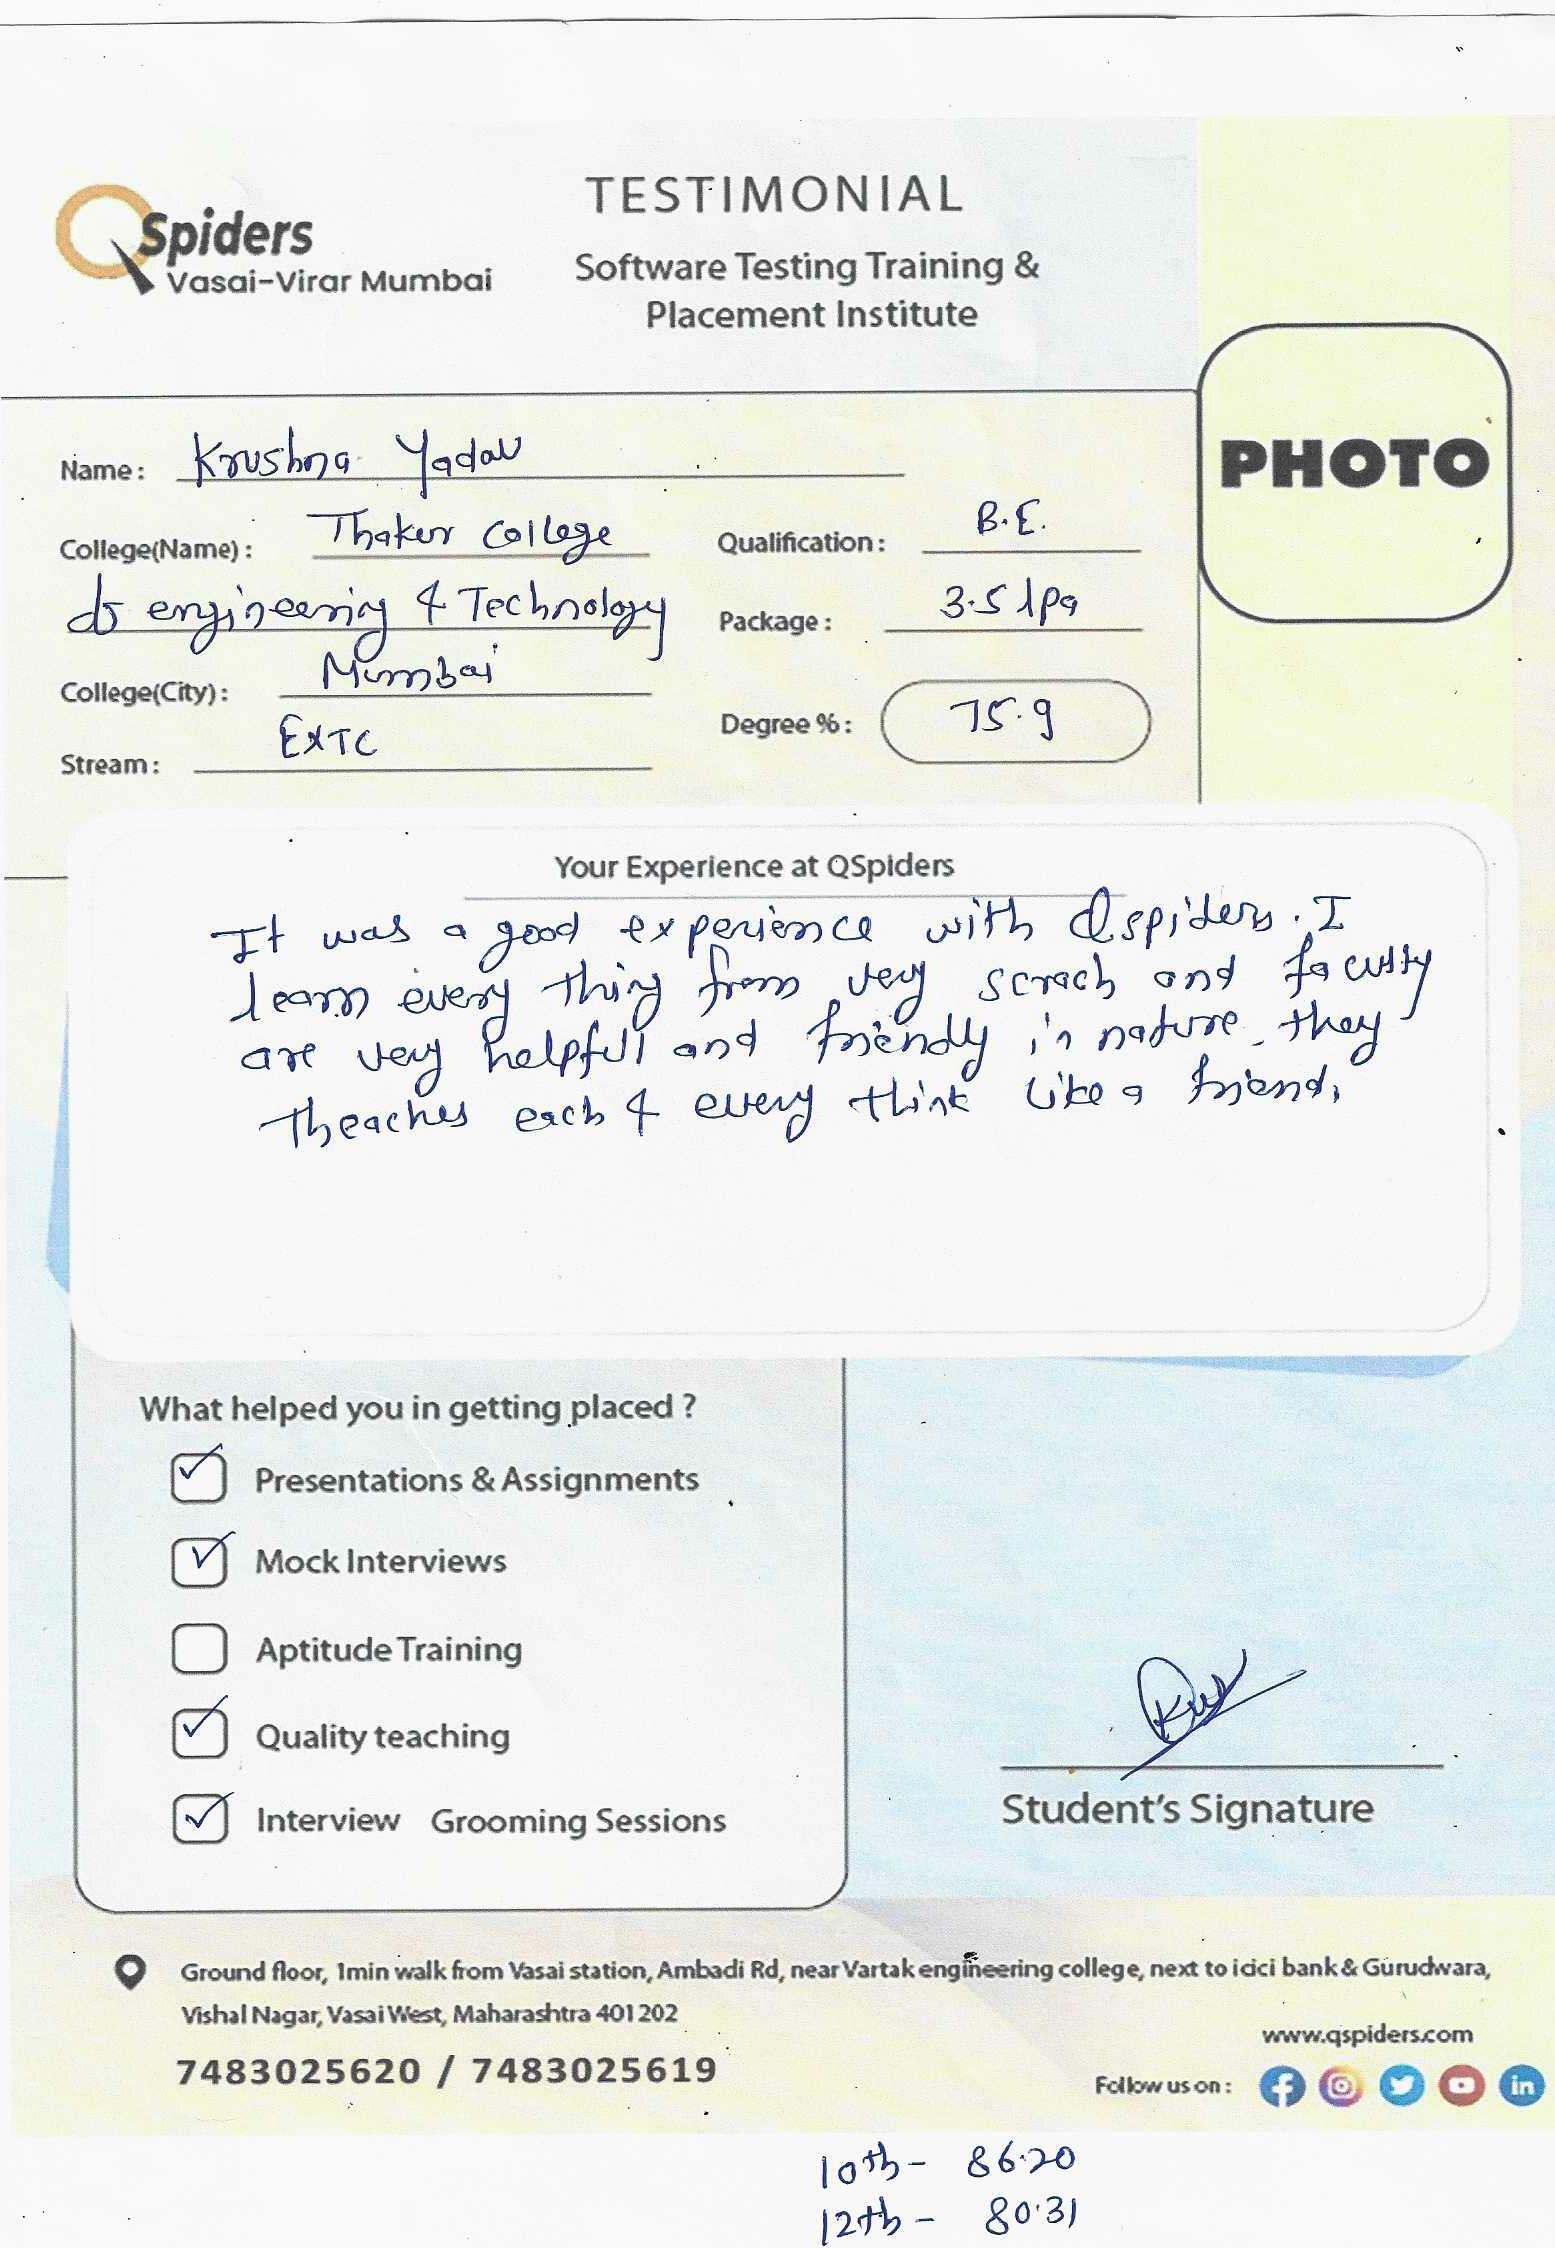 TESTIMONIAL
QSpiders
Vasai-Virar Mumbai
Software Testing Training &
Placement Institute
PHOTO
Name: Krushna Yadav
College(Name): Thakur College
of engineering & Technology
Qualification: B.E.
Package: 3.5 lpa
College(City): Mumbai
Degree %: 75.9
Stream: EXTC
Your Experience at QSpiders
It was a good experience with Qspiders. I
learn every thing from very scrach and faculty
are very helpful and friendly in nature. they
theaches each & every think like a friend.
What helped you in getting placed ?
Presentations & Assignments
Mock Interviews
Aptitude Training
Quality teaching
Interview Grooming Sessions
Student's Signature
Ground floor, 1min walk from Vasai station, Ambadi Rd, near Vartak engineering college, next to icici bank & Gurudwara,
Vishal Nagar, Vasai West, Maharashtra 401202
7483025620 / 7483025619
www.qspiders.com
Follow us on:
10th - 86.20
12th - 80.31